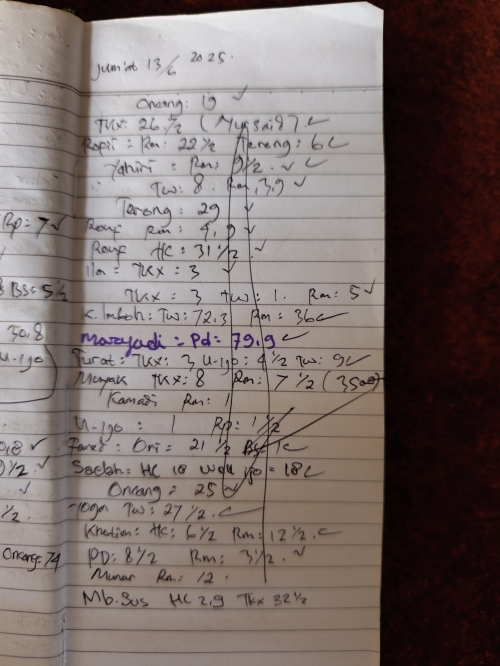 Jum'at 13/6 2025.
Oncang: 19 ✓
TKx: 26 1/2 (Mursaid) ✓
Rapii: Rm: 22 1/2 Terong: 6 ✓
Yahiri = Rm: 9 1/2 ✓
Tw: 8 Rm, 3,9 ✓
Bp = 7 ✓
Terong: 29
Rouf Rm: 4,9 ✓
Rouf HC: 31 1/2 ✓
Ila = TKx: 3 ✓
BS = 5 1/2
TKx = 3 Tw: 1. Rm: 5 ✓
K. Imboh: Tw: 72.3 Rm: 36 ✓
30.8
Maryadi = Pd = 79,9 ✓
U-igo
Turat: TKx: 3 U-igo: 4 1/2 Tw: 9 ✓
Muyak TKx: 8 Rm: 7 1/2 (3500)
Kamari Rm: 1
U-igo: 1 Rp: 1 1/2
0,8 ✓
Fared: Ori: 21 1/2 BS: 1 ✓
9 1/2 ✓
Saebh: HC 10 igo = 18 ✓
Oncang = 25 ✓
Yoga Tw: 27 1/2 ✓
Kholim: HC: 6 1/2 Rm: 12 1/2 ✓
Oncang: 74
PD: 8 1/2 Rm: 3 1/2 ✓
Munar Rm: 12.
Mb. Sus HC 2,9 TKx 32 1/2